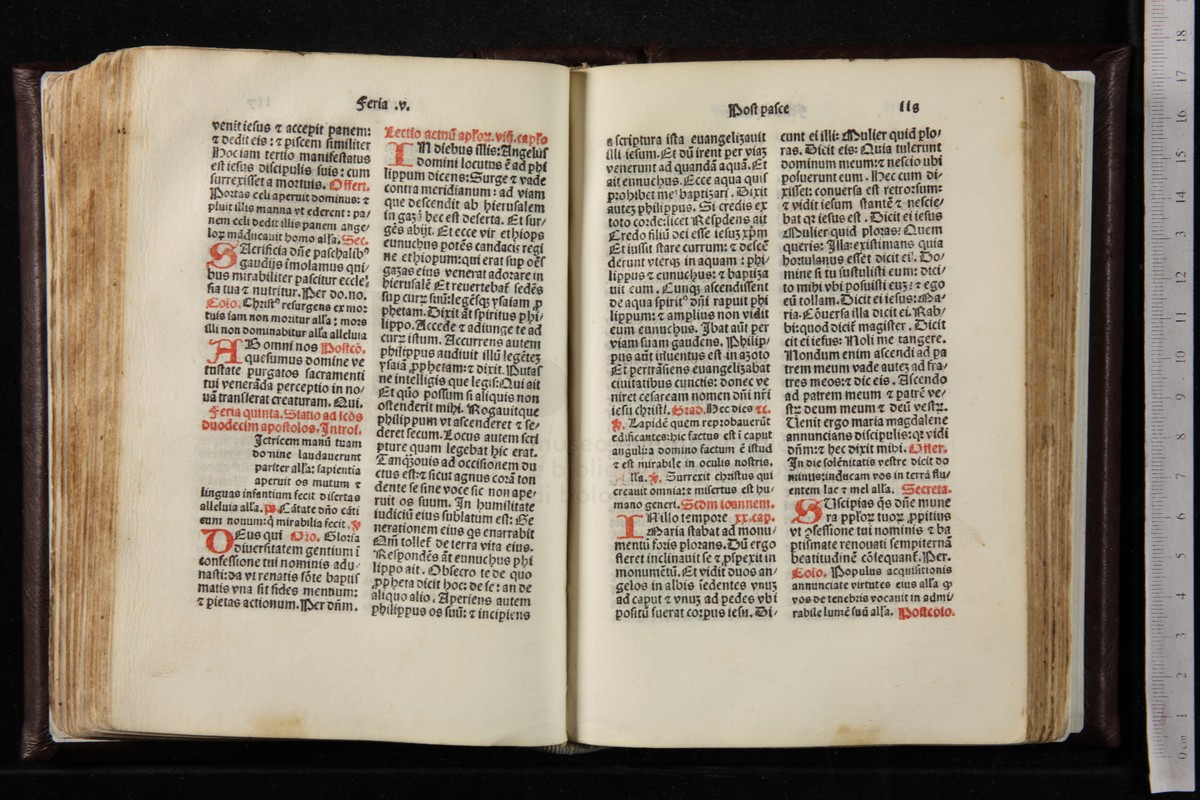 Feria .v.
venit iesus ⁊ accepit panem:
⁊ dedit eis: ⁊ piscem similiter
Hoc iam tertio manifestatus
est iesus discipulis suis: cum
surrexisset a mortuis. Offert.
Portas celi aperuit dominus: ⁊
pluit illis manna vt ederent: pa/
nem celi dedit illis panem ange/
loꝝ mãducauit homo alĩa. Sec.
SAcrificia dñe paschalibꝰ
gaudijs ĩmolamus qui/
bus mirabiliter pascitur eccle/
sia tua ⁊ nutritur. Per do.no.
Cõio. Christꝰ resurgens ex mor
tuis iam non moritur alĩa: mors
illi non dominabitur alĩa alleluia
AB omni nos Postcõ.
quesumus domine ve
tustate purgatos sacramenti
tui venerãda perceptio in no/
uã transferat creaturam. Qui.
Feria quinta. Statio ad scõs
duodecim apostolos. Introi.
Ictricem manũ tuam
domine laudauerunt
pariter alĩa: sapientia
aperuit os mutum ⁊
linguas infantium fecit disertas
alleluia alĩa. ps. Cãtate dño cãti
cum nouum: q̃ mirabilia fecit. ps
DEus qui Oro. Gloria
diuersitatem gentium ĩ
confessione tui nominis adu/
nasti: da vt renatis fõte baptis
matis vna sit fides mentium:
⁊ pietas actionum. Per dñm.
Lectio actuũ apľoꝝ. viij. capľo
IN diebus illis: Angelus
domini locutus ẽ ad phi
lippum dicens: Surge ⁊ vade
contra meridianum: ad viam
que descendit ab hierusalem
in gazã hec est deserta. Et sur/
gẽs abijt. Et ecce vir ethiops
eunuchus potẽs candacis regi
ne ethiopum: qui erat sup oẽs
gazas eius venerat adorare in
hierusalẽ Et reuertebat̃ sedẽs
sup currũ suũ: legẽsqꝫ ysaiam ꝓ
phetam. Dixit aũt spiritus phi/
lippo. Accede ⁊ adiunge te ad
currũ istum. Accurrens autem
philippus audiuit illũ legẽtẽ
ysaiã ꝓphetam: ⁊ dixit. Putas
ne intelligis que legis: Qui ait
Et quõ possum si aliquis non
ostenderit mihi. Rogauitque
philippum vt ascenderet ⁊ se/
deret secum. Locus autem scri
pture quam legebat hic erat.
Tanq̃ ouis ad occisionem du
ctus est: ⁊ sicut agnus corã ton
dente se sine voce sic non ape/
ruit os suum. In humilitate
iudiciũ eius sublatum est: Ge
nerationem eius qs enarrabit
Qm̃ tollet̃ de terra vita eius.
Respondẽs aũt eunuchus phi
lippo ait. Obsecro te de quo
ꝓpheta dicit hoc: de se: an de
aliquo alio. Aperiens autem
philippus os suũ: ⁊ incipiens
Post pasce
118
a scriptura ista euangelizauit
illi iesum. Et dũ irent per viaꝫ
venerunt ad quandã aquã. Et
ait eunuchus. Ecce aqua quis
prohibet me baptizari. Dixit
auteꝫ philippus. Si credis ex
toto corde: licet Respõdens ait
Credo filiũ dei esse iesuꝫ xp̃m
Et iussit stare currum: ⁊ descẽ
derunt vterqꝫ in aquam: phi/
lippus ⁊ eunuchus: ⁊ baptiza
uit eum. Cunqꝫ ascendissent
de aqua spiritꝰ dñi rapuit phi
lippum: ⁊ amplius non vidit
eum eunuchus. Ibat aũt per
viam suam gaudens. Philip/
pus aũt inuentus est in azoto
Et pertrãsiens euangelizabat
ciuitatibus cunctis: donec ve
niret cesaream nomen dñi nr̃i
iesu christi. Grad. Hec dies ⁊c.
ꝟ. Lapidẽ quem reprobauerũt
edificantes: hic factus est ĩ caput
anguli: a domino factum ẽ istud
⁊ est mirabile in oculis nostris.
Alľa. ꝟ. Surrexit christus qui
creauit omnia: ⁊ misertus est hu/
mano generi. Scdm ioannem.
IN illo tempore xx.cap.
Maria stabat ad monu/
mentũ foris plorans. Dũ ergo
fleret inclinauit se ⁊ ꝓspexit in
monumẽtũ. Et vidit duos an/
gelos in albis sedentes vnuꝫ
ad caput ⁊ vnuꝫ ad pedes vbi
positũ fuerat corpus iesu. Di/
cunt ei illi: Mulier quid plo/
ras. Dicit eis: Quia tulerunt
dominum meum: ⁊ nescio vbi
posuerunt eum. Hec cum di/
xisset: conuersa est retrorsum:
⁊ vidit iesum stantẽ ⁊ nescie/
bat qꝛ iesus est. Dicit ei iesus
Mulier quid ploras: Quem
queris: Illa: existimans quia
hortulanus esset dicit ei. Do/
mine si tu sustulisti eum: dici/
to mihi vbi posuisti euꝫ: ⁊ ego
eũ tollam. Dicit ei iesus: Ma/
ria. Cõuersa illa dicit ei. Rab/
bi: quod dicit̃ magister. Dicit
ei iesus: Noli me tangere.
Nondum enim ascendi ad pa
trem meum vade autẽ ad fra/
tres meos: ⁊ dic eis. Ascendo
ad patrem meum ⁊ patrẽ ve/
str̃: deum meum ⁊ deũ vestr̃.
Uenit ergo maria magdalene
annuncians discipulis: qꝛ vidi
dñm: ⁊ hec dixit mihi. Offer.
In die solẽnitatis vestre dicit do
minus: inducam vos in terrã flu/
entem lac ⁊ mel alĩa. Secreta.
SUscipias q̃s dñe mune
ra ppľoꝝ tuoꝝ ꝓpitius
vt ꝯfessione tui nominis ⁊ ba
ptismate renouati sempiternã
beatitudinẽ cõsequant̃. Per.
Cõio. Populus acquisitionis
annunciate virtutes eius alĩa q̃
vos de tenebris vocauit in admi/
rabile lumẽ suũ alĩa. Postcõio.